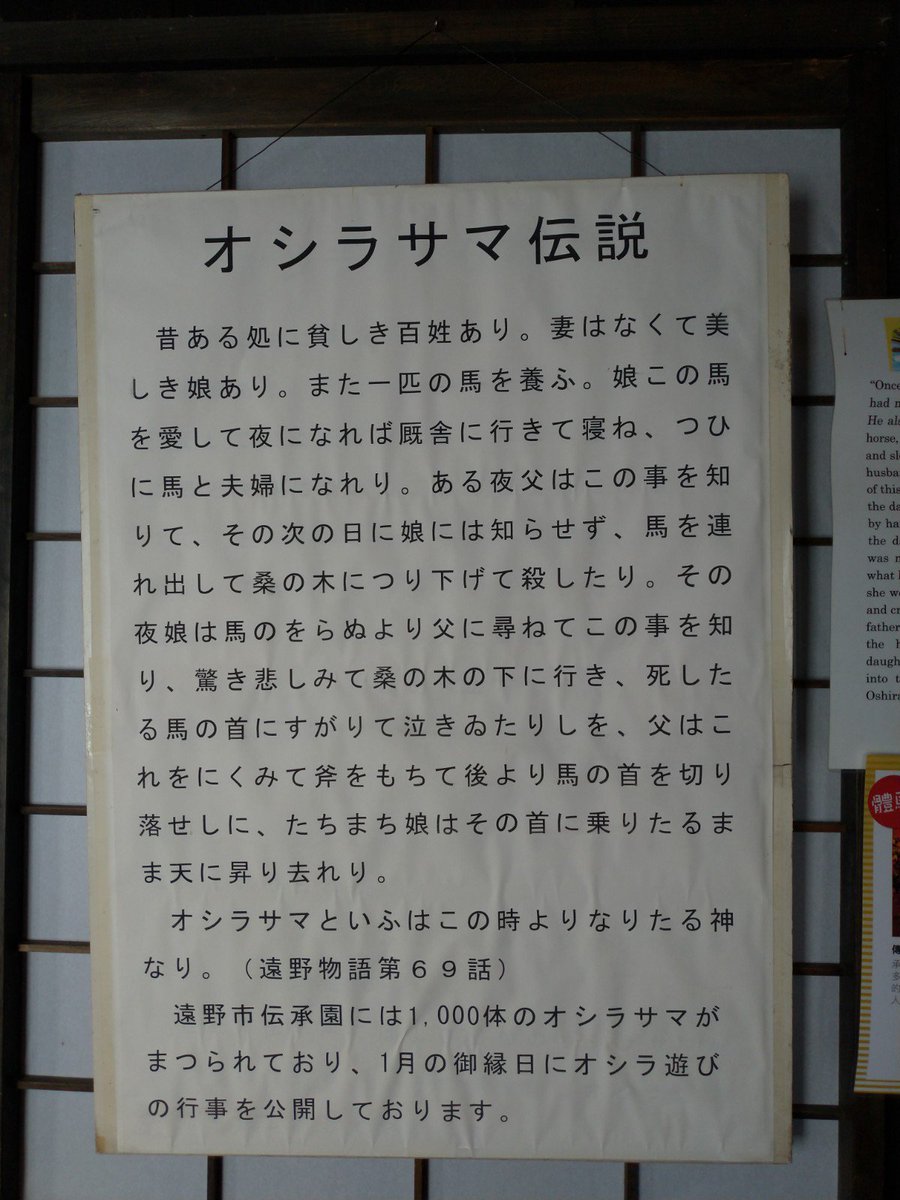 オシラサマ伝説
昔ある処に貧しき百姓あり。妻はなくて美
しき娘あり。また一匹の馬を養ふ。娘この馬
を愛して夜になれば厩舎に行きて寝ね、つひ
に馬と夫婦になれり。ある夜父はこの事を知
りて、その次の日に娘には知らせず、馬を連
れ出して桑の木につり下げて殺したり。その
夜娘は馬のをらぬより父に尋ねてこの事を知
り、驚き悲しみて桑の木の下に行き、死した
る馬の首にすがりて泣きゐたりしを、父はこ
れをにくみて斧をもちて後より馬の首を切り
落せしに、たちまち娘はその首に乗りたるま
ま天に昇り去れり。
オシラサマといふはこの時よりなりたる神
なり。（遠野物語第６９話）
遠野市伝承園には1,000体のオシラサマが
まつられており、1月の御縁日にオシラ遊び
の行事を公開しております。
“Once
had
He
horse,
and
of this
the
by
the
was
what
she
and
father
the
into
體
傳
承
多
的
人